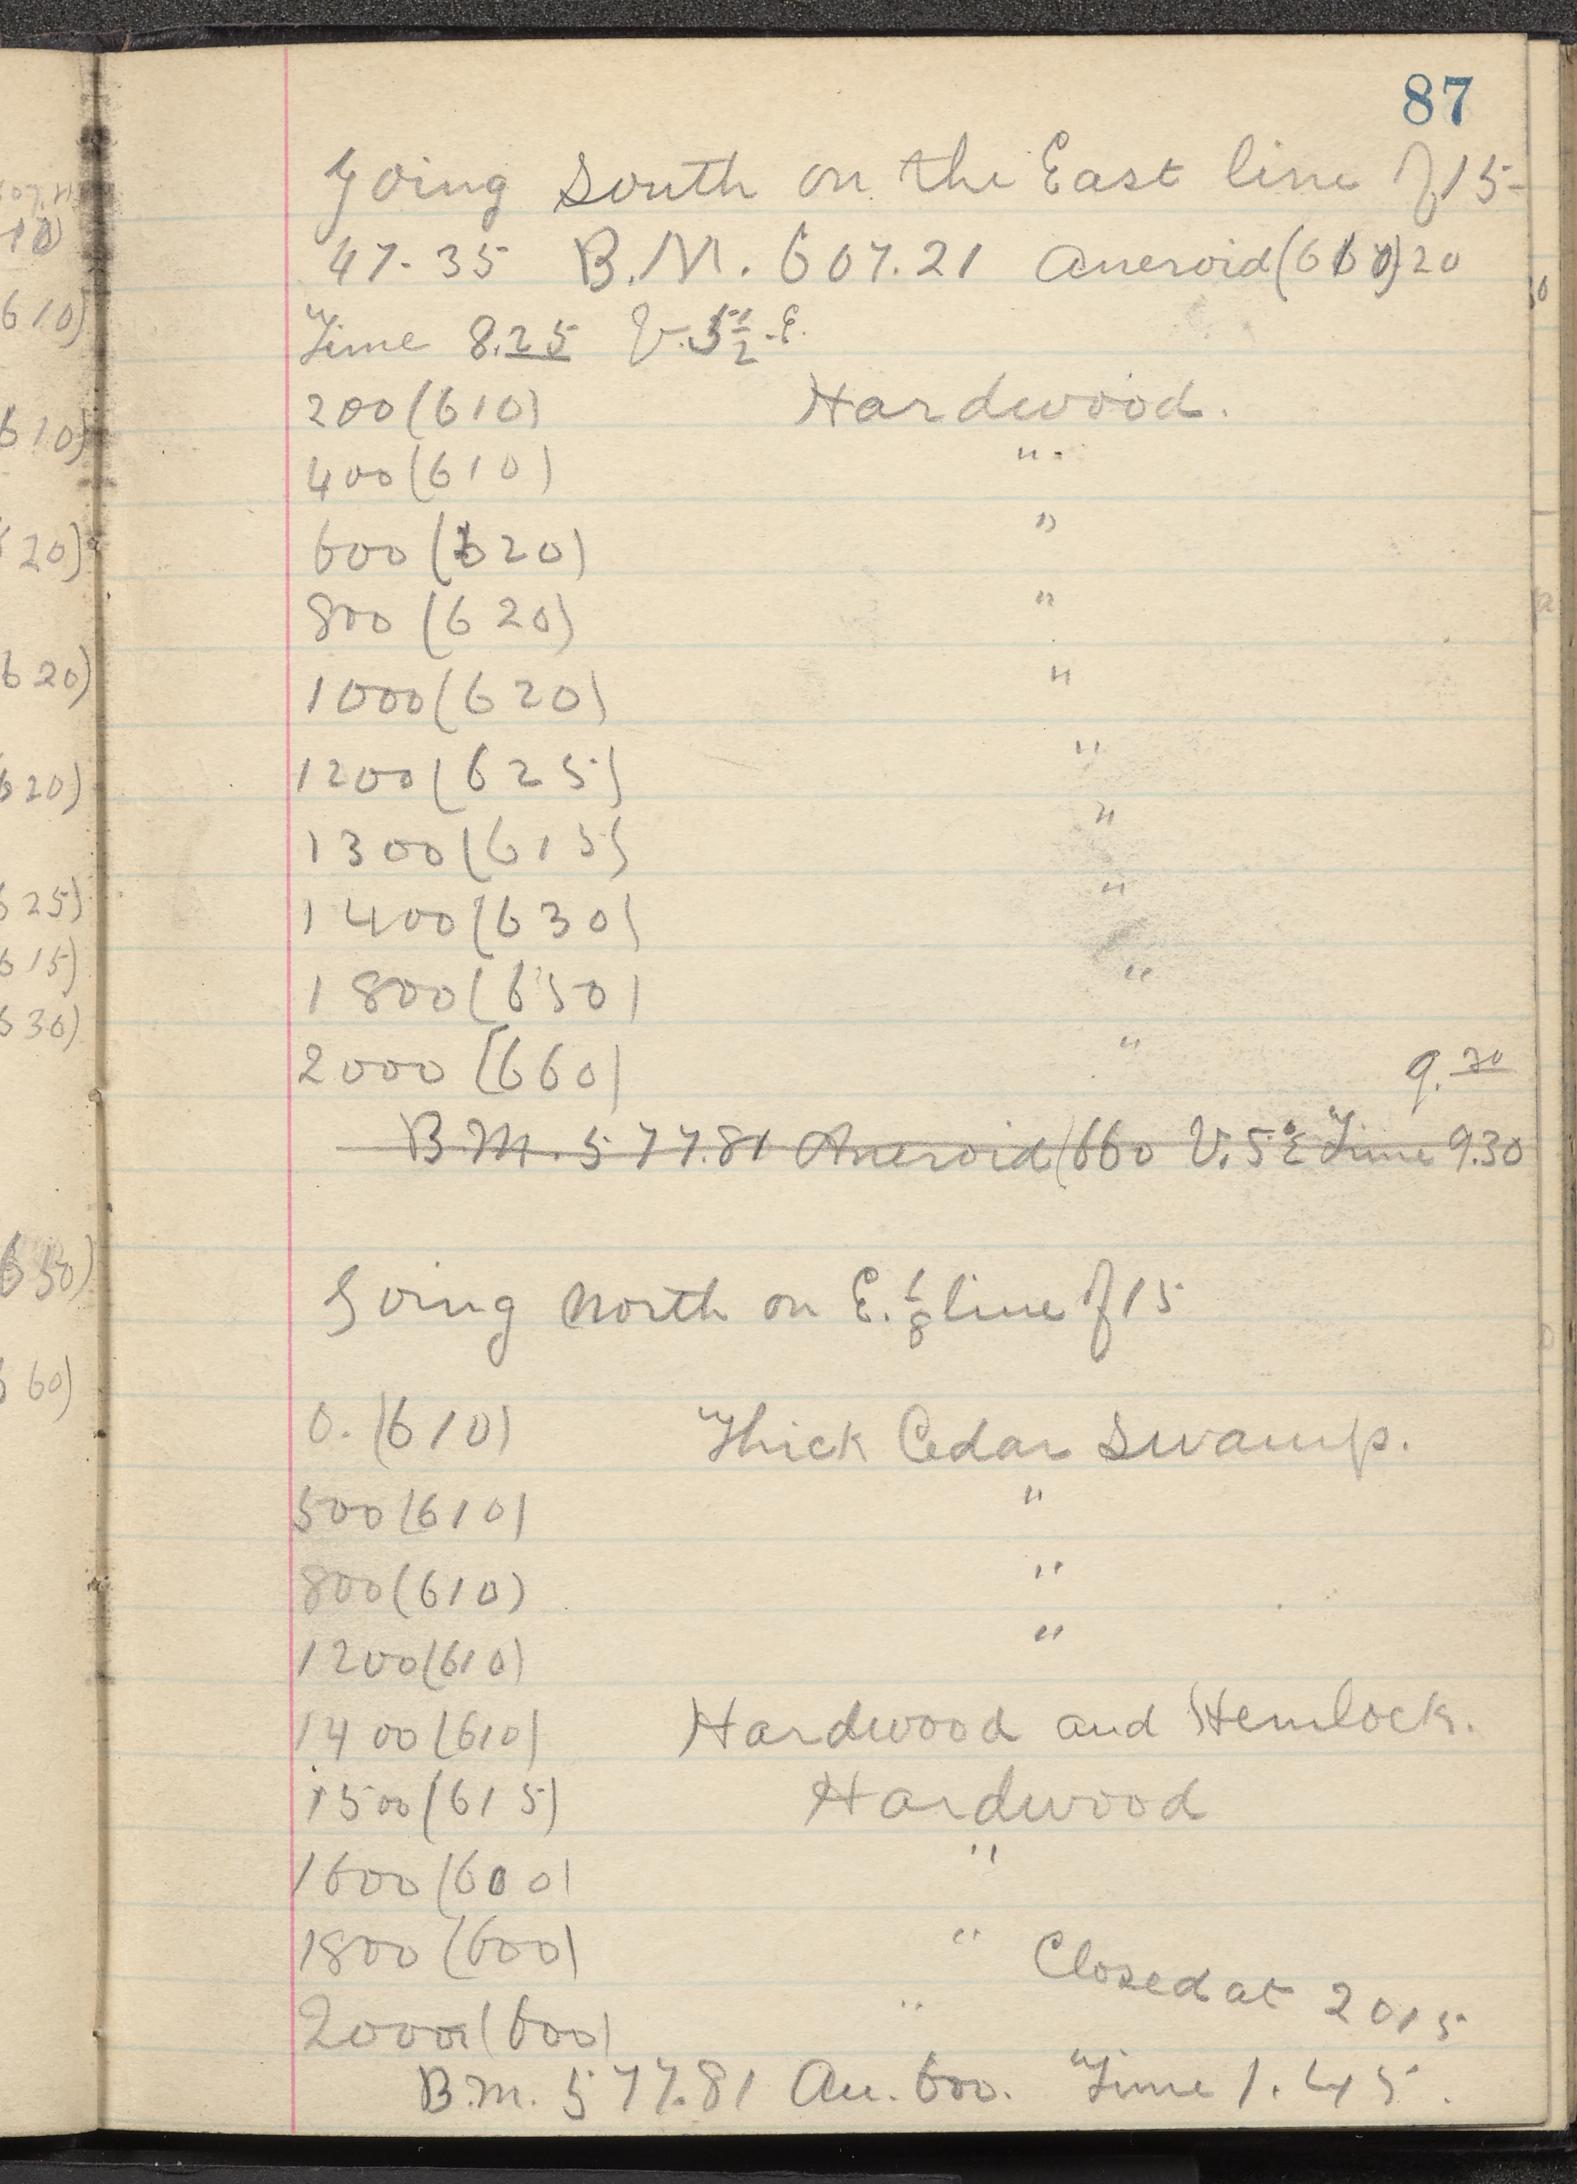 87
Going South on the East line of 15-
47-35 B.M. 607.21 Aneroid (610) 20
Time 8.25 V. 5 1/2 . E.
200 (610) Hardwood.
400 (610) "
600 (620) "
800 (620) "
1000 (620) "
1200 (625) "
1300 (615) "
1400 (630) "
1800 (650) "
2000 (660) " 9.30
B.M. 577.81 Aneroid (660 V. 5° E Time 9.30
Going North on E. 1/8 line of 15
0. (610) Thick Cedar Swamp.
500 (610) "
800 (610) "
1200 (610) "
1400 (610) Hardwood and Hemlock.
1500 (615) Hardwood
1600 (600) "
1800 (600) " Closed at 2015
2000 (600) "
B.M. 577.81 An. 600. Time 1.45.